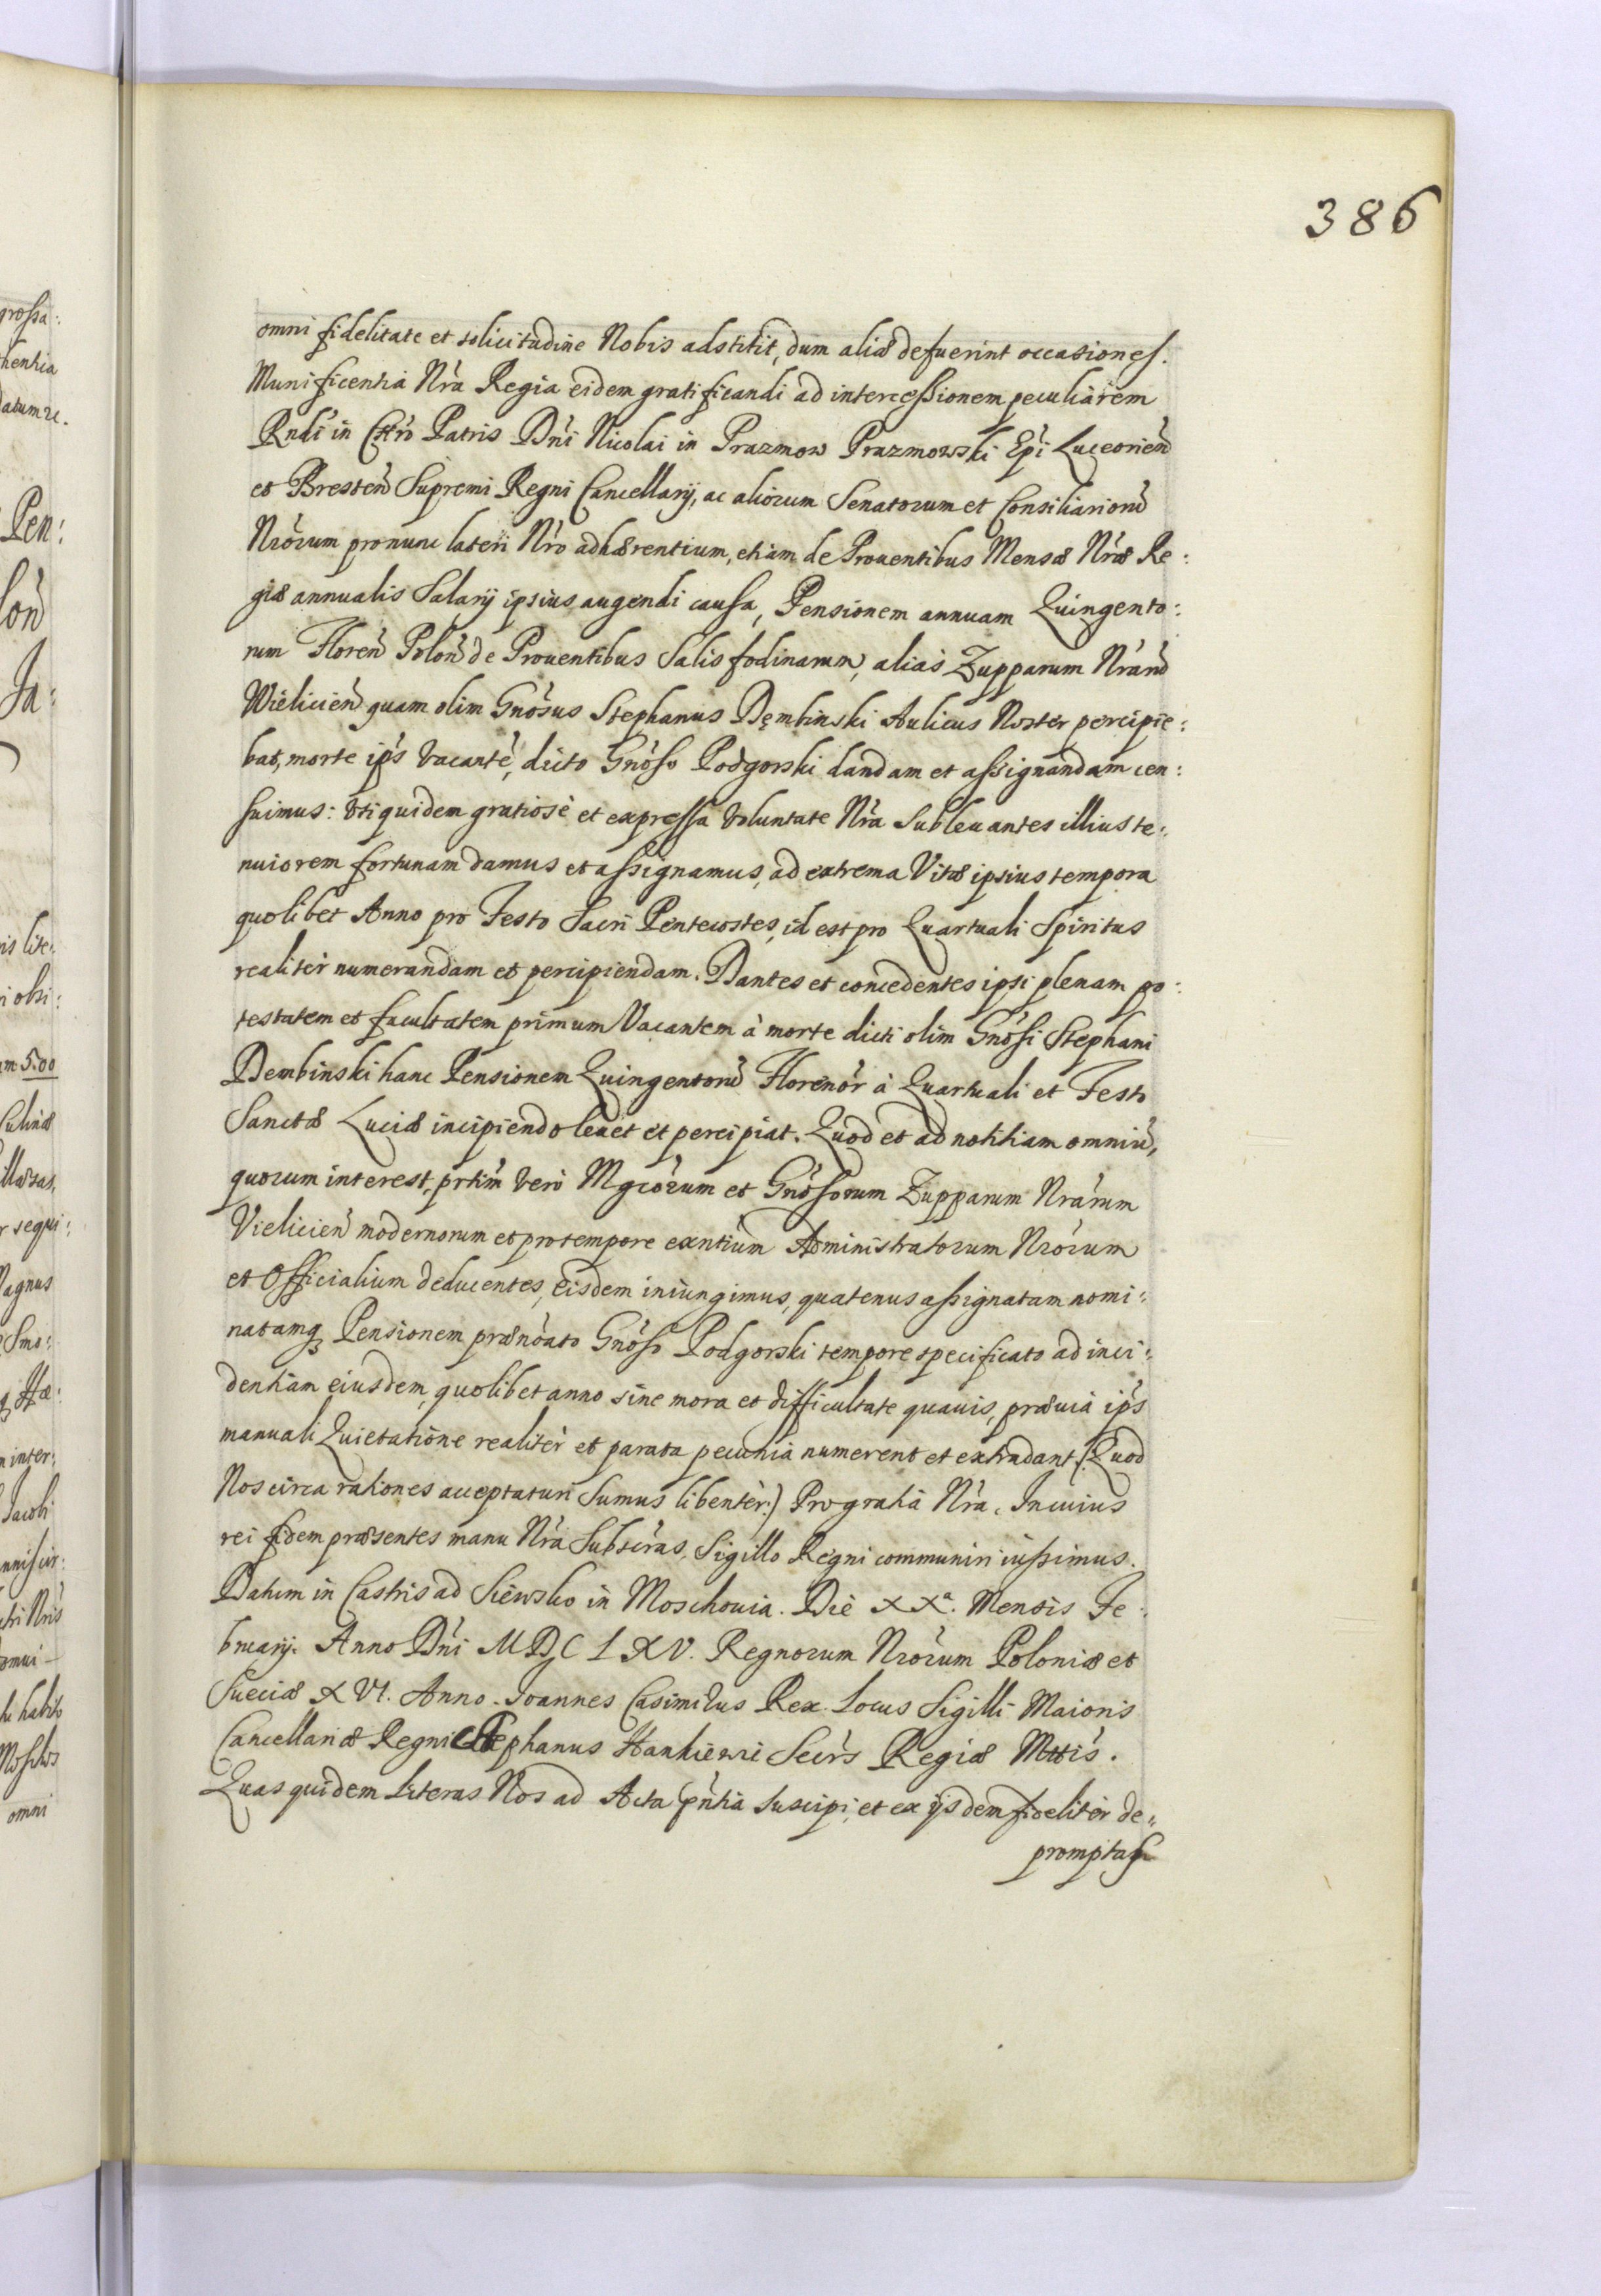 386
omni fidelitate et solicitudine Nobis adstitit, dum aliæ defuerint occasiones.
Munificentiâ Nrâ Regia eidem gratificandi ad intercessionem peculiarem
Rndi in Chro Patris Dni Nicolai in Prazmow Prazmowski Epi Luceorien
et Bresten Supremi Regni Cancellarij, ac aliorum Senatorum et Consiliarioru
Nrorum pronunc lateri Nro adhærentium, etiam de Prouentibus Mensæ Nræ Re:
giæ annualis Salarij ipsius augendi causa, Pensionem annuam Quingento:
rum Floren Polon de Prouentibus Salis fodinarum, alias Zupparum Nraru
Wielicien quam olim Gnosus Stephanus Dęmbinski Aulicus Noster percipie:
bat, morte ips vacante, dicto Gnoso Podgorski dandam et assignandam cen:
suimus: vti quidem gratiosè et expressa voluntate Nra subleuantes illius te:
nuiorem fortunam damus et assignamus, ad extrema Vitæ ipsius tempora
quolibet Anno pro Festo Sacri Pentecostes, id est pro Quartuali Spiritus
realiter numerandam et percipiendam. Dantes et concedentes ipsi plenam po:
testatem et facultatem primum Vacantem à morte dicti olim Gnosi Stephani
Dembinski hanc Pensionem Quingentoru Florenor à Quartuali et Festo
Sanctæ Luciæ incipiendo leuet et percipiat. Quod et ad notitiam omniu,
quorum interest, prtim vero Mgcorum et Gnosorum Zupparum Nrarum
Vielicien modernorum et protempore exntium Administratorum Nrorum
et Officialium deducentes, eisdem iniungimus, quatenus assignatam nomi:
natamq Pensionem prænoato Gnoso Podgorski tempore specificato ad inci:
dentiam eiusdem, quolibet anno sine mora et difficultate quauis, præuiâ ips
manuali Quietatione realiter et parata pecunia numerent et extradant (:Quod
Nos circa rationes acceptaturi sumus libenter:) Pro gratiâ Nra. In cuius
rei fidem præsentes manu Nra Subscras, Sigillo Regni communiri iussimus.
Datum in Castris ad Siewsko in Moschouia. Die XXa. Mensis Fe:
bruarij. Anno Dni MDCLXV. Regnorum Nrorum Poloniæ et
Sueciæ XVI. Anno. Joannes Casimirus Rex. Locus Sigilli Maioris
Cancellariæ Regni Stephanus Hankiewi Secrs Regiæ Mttis.
Quas quidem Literas Nos ad Acta pntia suscipi, et ex ijsdem fideliter de:
promptas